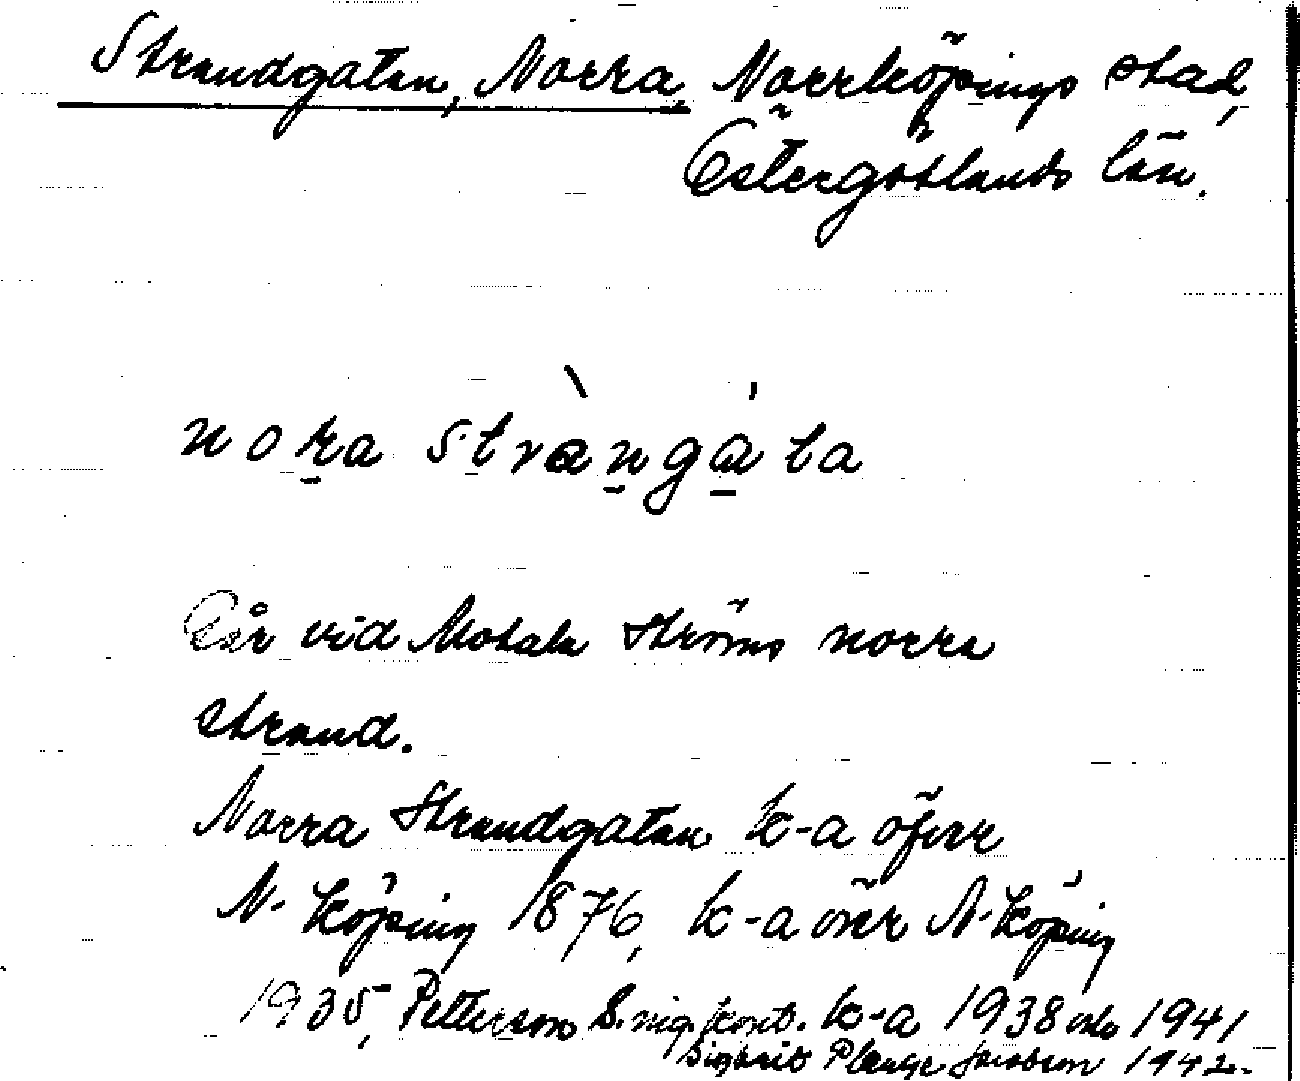 Strandgatan, Norra, Norrköpings stad,
Östergötlands län.
nora stràngáta
Går vid Motala Ströms norra
strand.
Norra Strandgatan k-a öfver
N-köping 1876, k-a över N-köping
1935, Petterson S. k-a 1938 1941
1942.